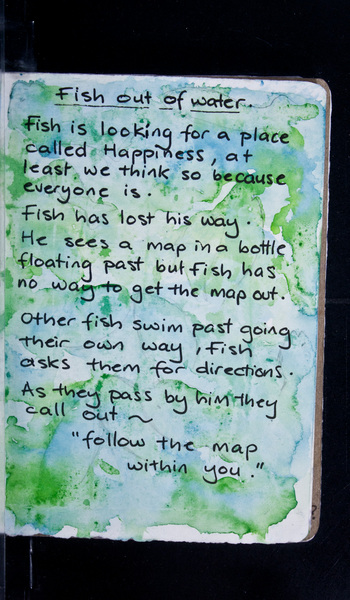 Fish out of water.
Fish is looking for a place
called Happiness, at
least we think so because
everyone is.
Fish has lost his way.
He sees a map in a bottle
floating past but Fish has
no way to get the map out.
Other fish swim past going
their own way, Fish
asks them for directions.
As they pass by him they
call out ~
"follow the map
within you."